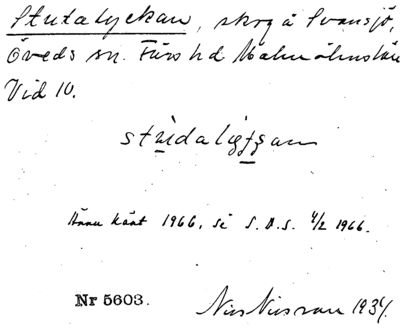 Stutalyckan, skog å Svansjö,
Öveds sn. Färs hd Malmöhus län
Vid 10.
studaligfsan
Ännu känt 1966, se S.D.S. 4/2 1966.
Nr 5603. Nils Nilsson 1934.